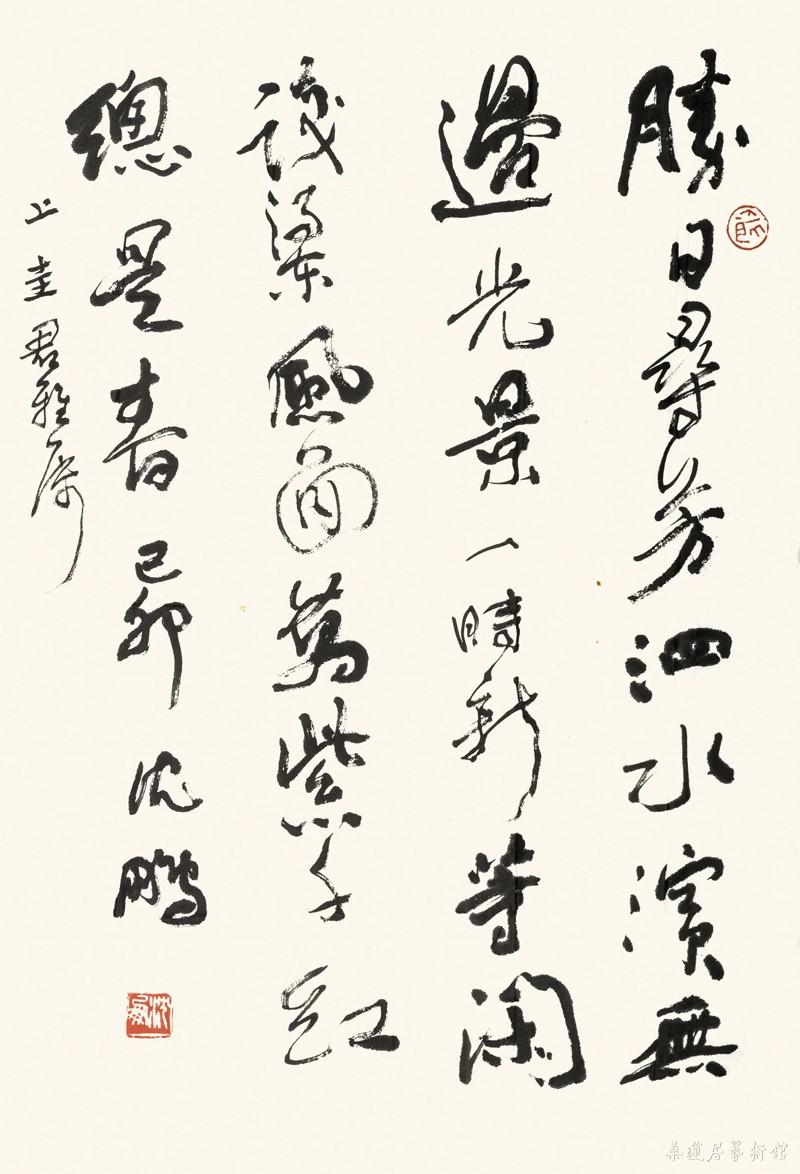 勝日尋芳泗水濱無
邊光景一時新等閑
識得東風面萬紫千紅
總是春 己卯 沈鵬
上圭君雅屬
沈鵬
桑蓮居藝術館